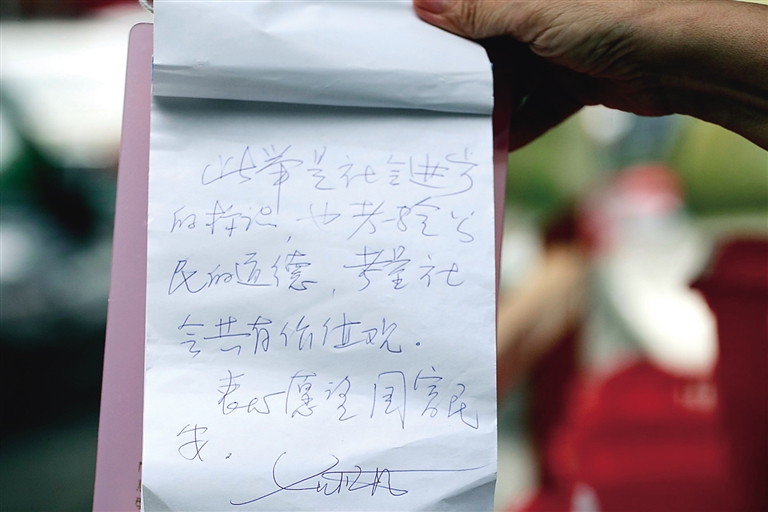 此举是社会进步
的标识,也考验公
民的道德,考量社
会共有价值观.
衷心愿望国富民
安.